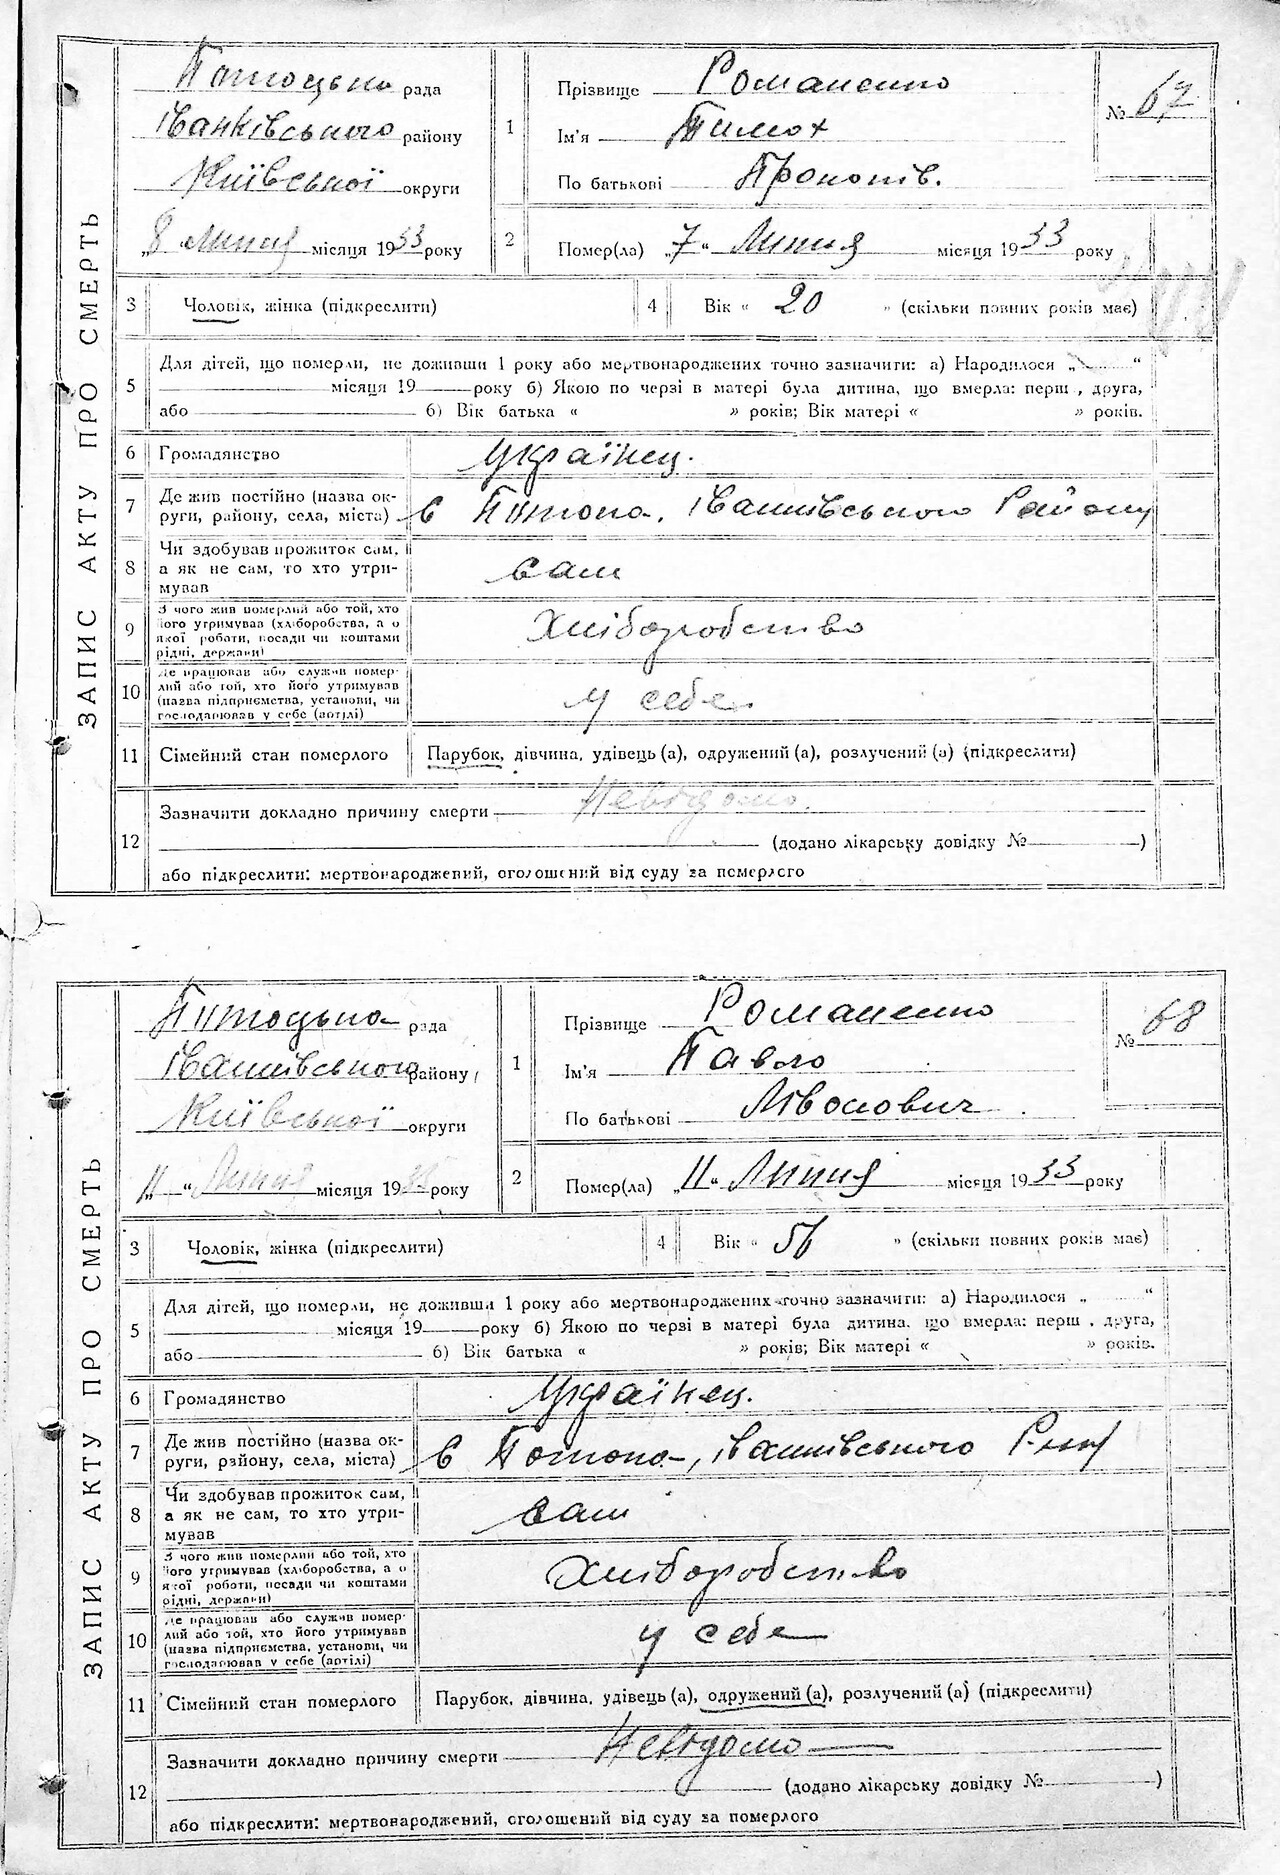 ЗАПИС АКТУ ПРО СМЕРТЬ
Потоцька рада
Іванківського району
Київської округи
„8 Липня місяця 1933 року
1
Прізвище Романенко
Ім'я Тимох
По батькові Прокопів.
№ 67
2
Помер(ла) „7“ Липня місяця 1933 року
3 Чоловік, жінка (підкреслити)
4 Вік « 20 » (скільки повних років має)
5
Для дітей, що померли, не доживши 1 року або мертвонароджених точно зазначити: а) Народилося „ “
місяця 19 року б) Якою по черзі в матері була дитина, що вмерла: перш , друга,
або б) Вік батька « » років; Вік матері « » років.
6 Громадянство Українец.
7
Де жив постійно (назва ок-
руги, району, села, міста) с Потока, Іванківського Району
8
Чи здобував прожиток сам,
а як не сам, то хто утри-
мував
сам
9
З чого жив померлий або той, хто
його утримував (хліборобства, а о
якої роботи, посади чи коштами
рідні, держави)
Хліборобство
10
Де працював або служив помер-
лий або той, хто його утримував
(назва підприємства, установи, чи
господарював у себе (артілі)
у себе
11 Сімейний стан померлого Парубок, дівчина, удівець (а), одружений (а), розлучений (а) (підкреслити)
12
Зазначити докладно причину смерти Невідомо.
(додано лікарську довідку № )
або підкреслити: мертвонароджений, оголошений від суду за померлого
ЗАПИС АКТУ ПРО СМЕРТЬ
Потоцька рада
Іванківського району
Київської округи
„11“ Липня місяця 1933 року
1
Прізвище Романенко
Ім'я Павло
По батькові
№ 68
2
Помер(ла) „11“ Липня місяця 1933 року
3 Чоловік, жінка (підкреслити)
4 Вік « 56 » (скільки повних років має)
5
Для дітей, що померли, не доживши 1 року або мертвонароджених точно зазначити: а) Народилося „ “
місяця 19 року б) Якою по черзі в матері була дитина, що вмерла: перш , друга,
або б) Вік батька « » років; Вік матері « » років.
6 Громадянство Українец.
7
Де жив постійно (назва ок-
руги, району, села, міста) с Потока, Іванківського
8
Чи здобував прожиток сам,
а як не сам, то хто утри-
мував
сам
9
З чого жив померлий або той, хто
його утримував (хліборобства, а о
якої роботи, посади чи коштами
рідні, держави)
Хліборобство
10
Де працював або служив помер-
лий або той, хто його утримував
(назва підприємства, установи, чи
господарював у себе (артілі)
у себе
11 Сімейний стан померлого Парубок, дівчина, удівець (а), одружений (а), розлучений (а) (підкреслити)
12
Зазначити докладно причину смерти Невідомо
(додано лікарську довідку № )
або підкреслити: мертвонароджений, оголошений від суду за померлого